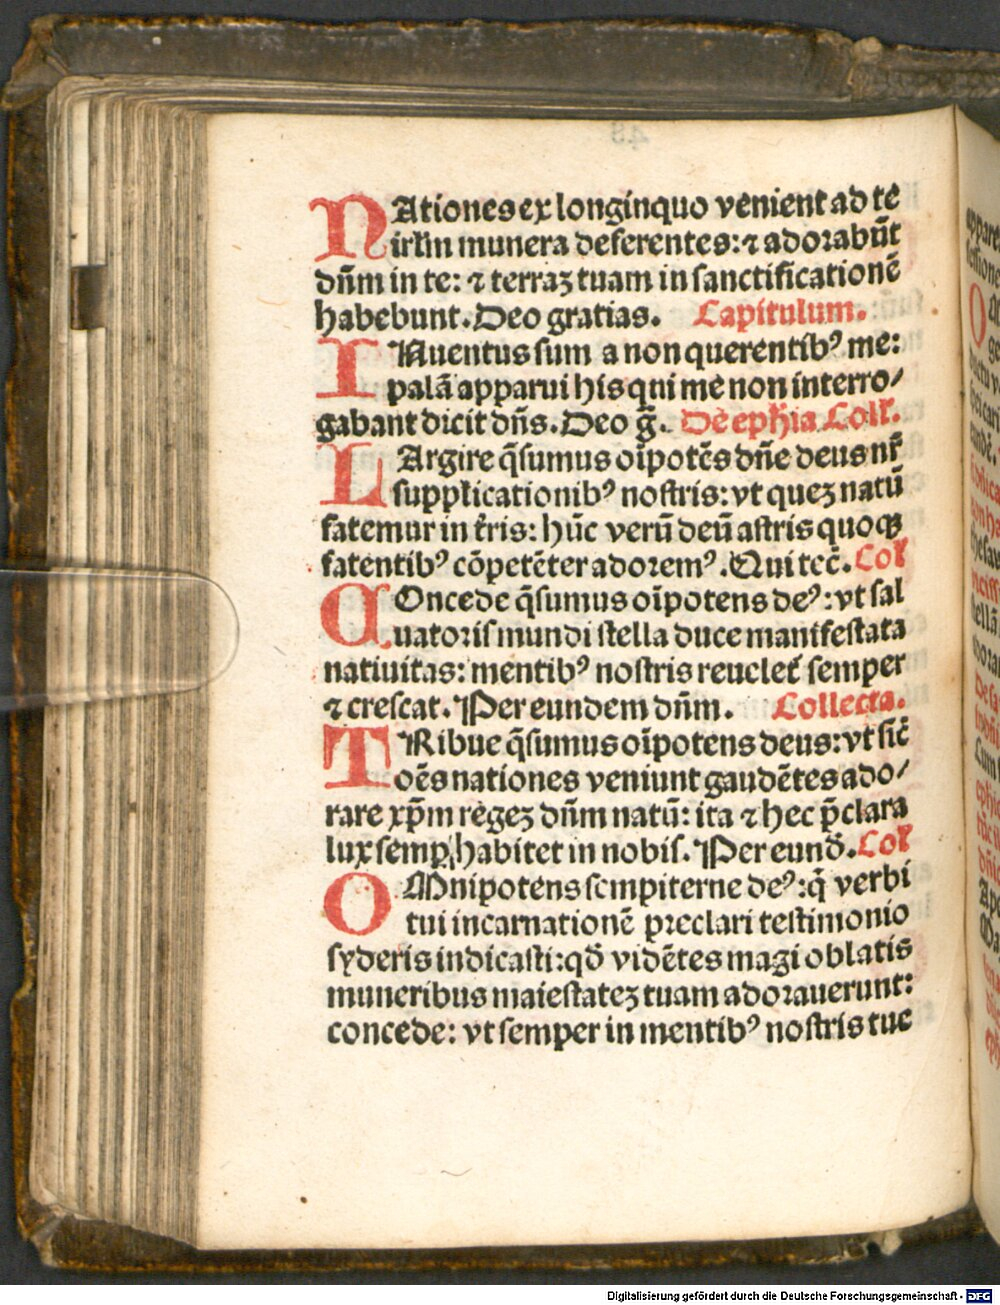 NAtiones ex longinquo venient ad te
irl̄m munera deferentes: ⁊ adorabūt
dn̄m in te: ⁊ terraꝫ tuam in sanctificationē
habebunt. Deo gratias. Capitulum.
INuentus sum a non querentibꝰ me:
palā apparui his qui me non interro⸗
gabant dicit dn̄s. Deo g̃. De ephīa Coll̄.
LArgire q̄sumus oīpotēs dn̄e deus nr̄
supplicationibꝰ nostris: vt queꝫ natū
fatemur in t̄ris: hūc verū deū astris quoqꝫ
fatentibꝰ cōpetēter adoremꝰ. Qui tecē. Col̄
COncede q̄sumus oīpotens deꝰ: vt sal
uatoris mundi stella duce manifestata
natiuitas: mentibꝰ nostris reuelet̄ semper
⁊ crescat. Per eundem dn̄m. Collecta.
TRibue q̄sumus oīpotens deus: vt sic̄
oēs nationes veniunt gaudētes ado⸗
rare xp̄m regeꝫ dn̄m natū: ita ⁊ hec p̄clara
lux semꝑ habitet in nobis. Per eund̄. Col̄
OMnipotens sempiterne deꝰ: q̄ verbi
tui incarnationē preclari testimonio
syderis indicasti: qd̄ vidētes magi oblatis
muneribus maiestateꝫ tuam adorauerunt:
concede: vt semper in mentibꝰ nostris tue
Digitalisierung gefördert durch die Deutsche Forschungsgemeinschaft - DFG